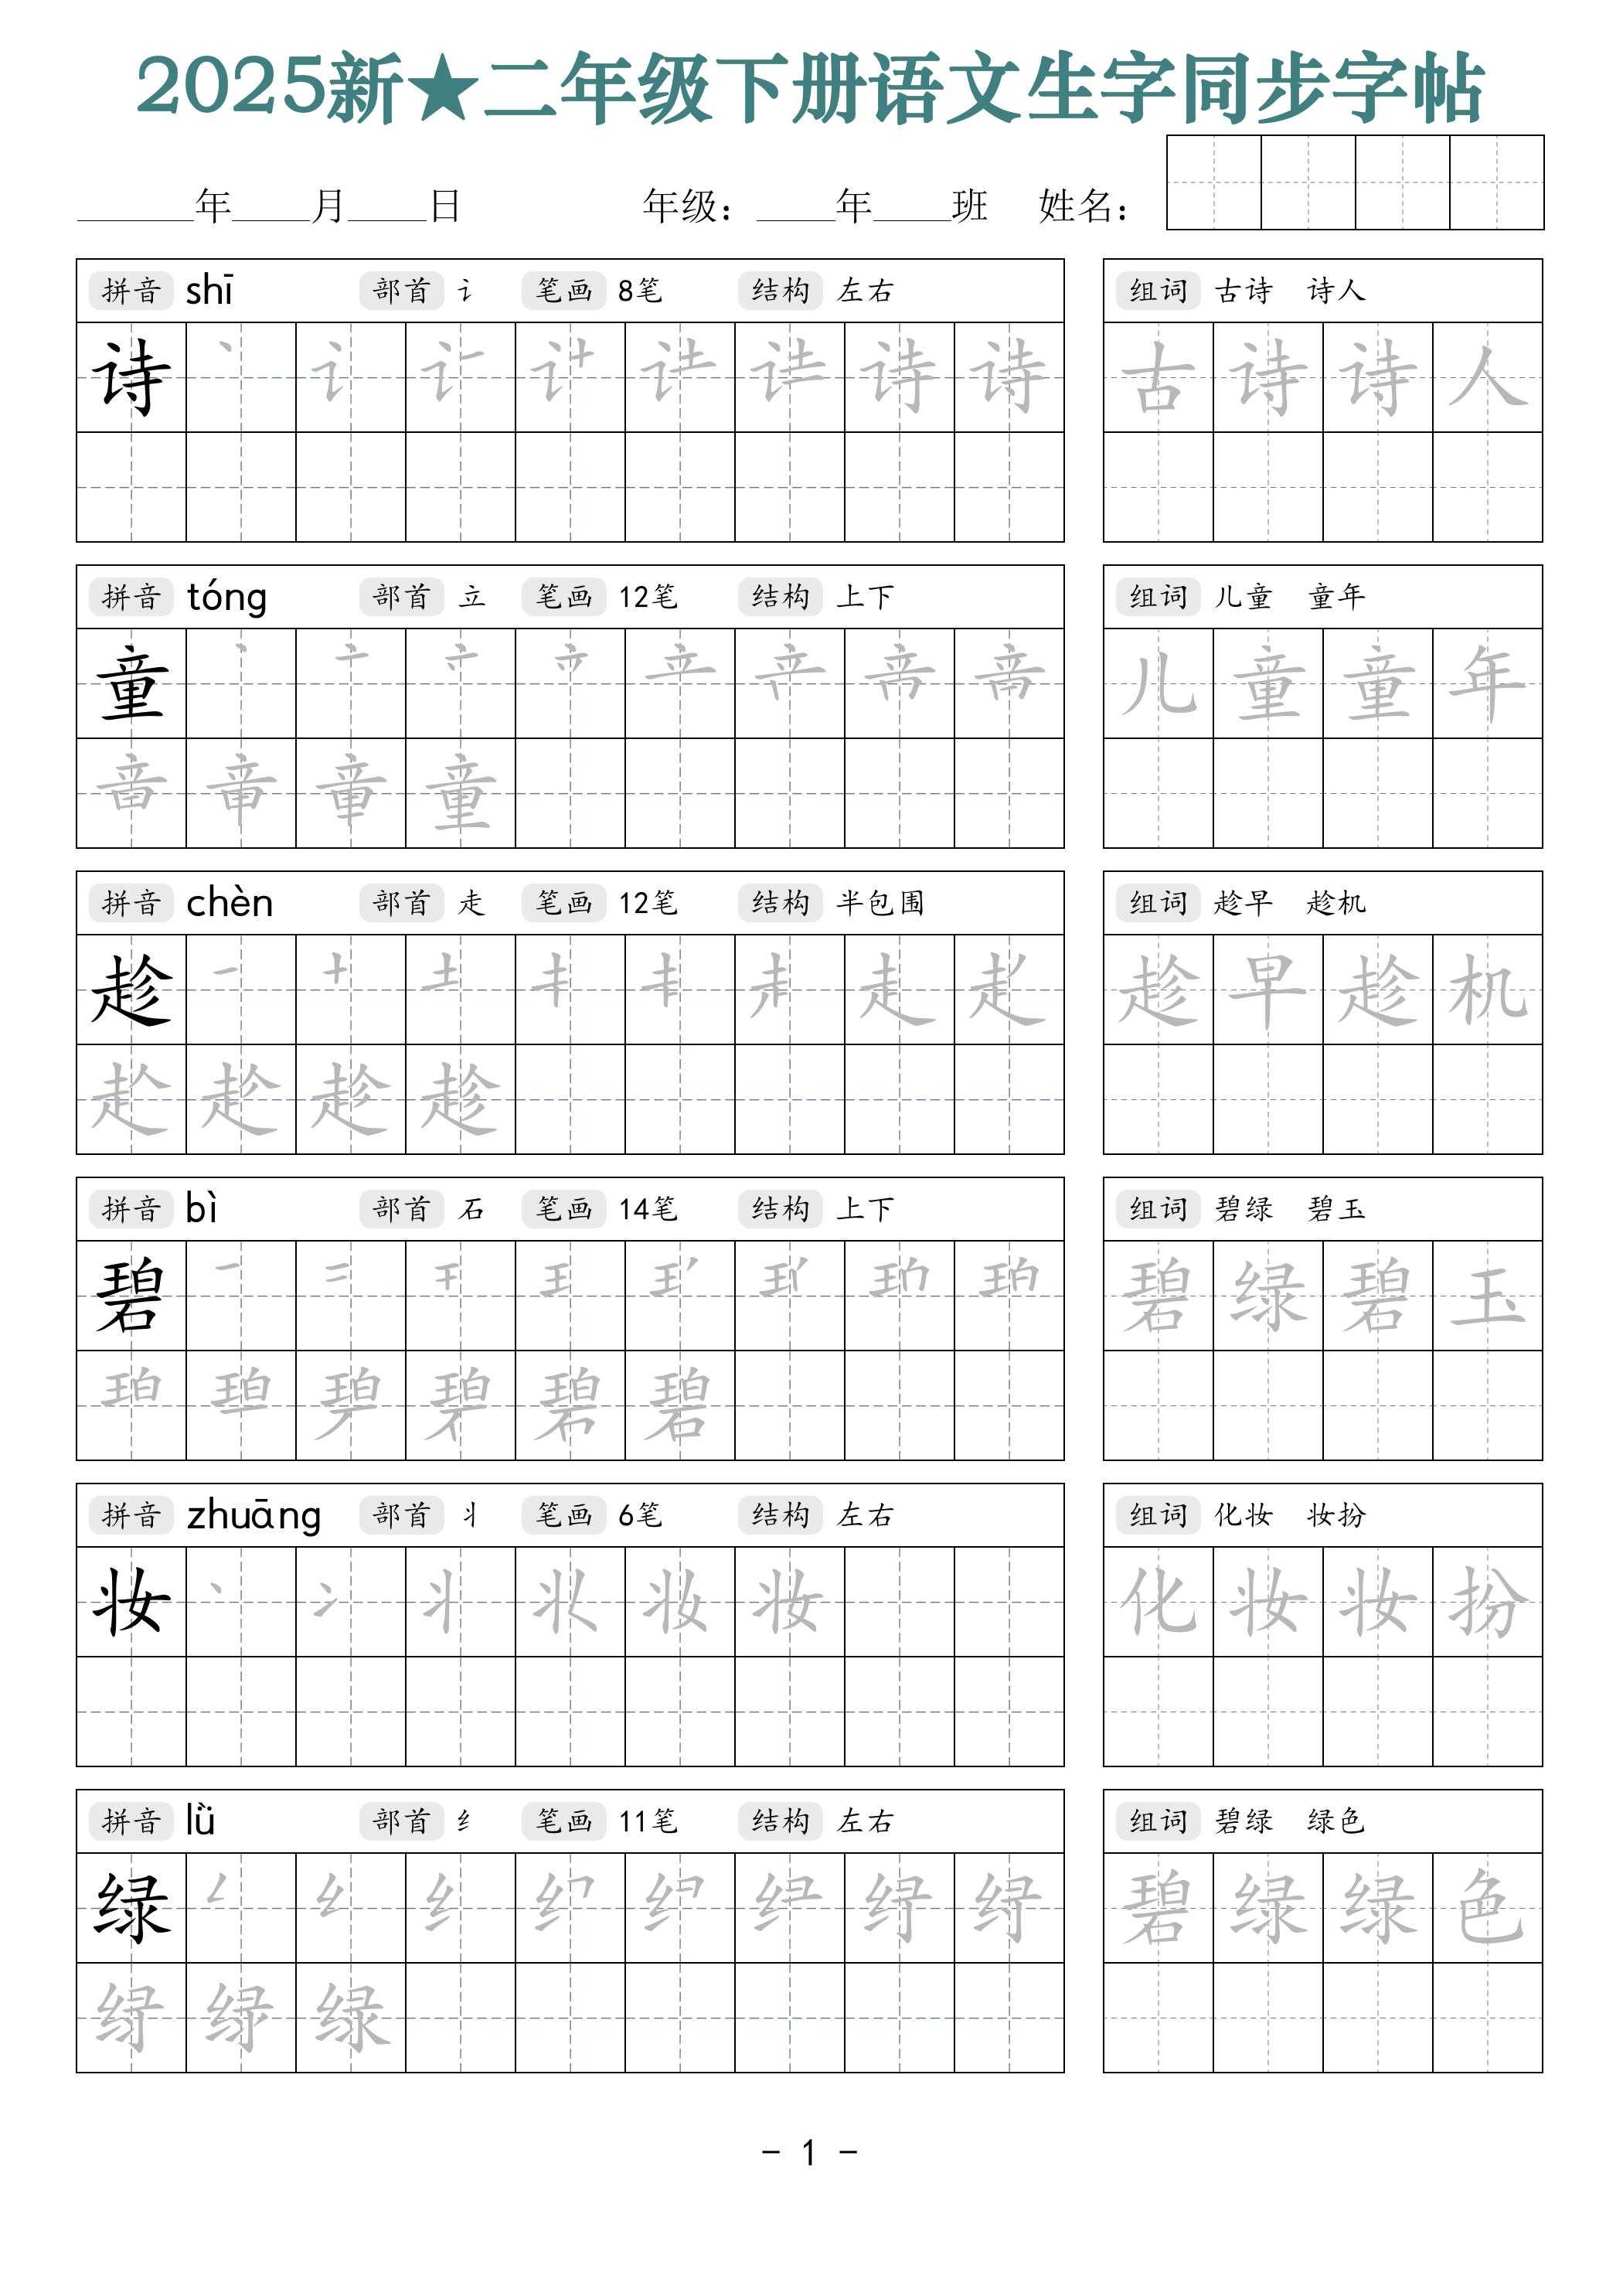 2025新★二年级下册语文生字同步字帖
年 月 日 年级： 年 班 姓名：
拼音 shī 部首 讠 笔画 8笔 结构 左右 组词 古诗 诗人
诗 诗 诗 古 诗 诗 人
拼音 tóng 部首 立 笔画 12笔 结构 上下 组词 儿童 童年
童 儿 童 童 年
童
拼音 chèn 部首 走 笔画 12笔 结构 半包围 组词 趁早 趁机
趁 趁 早 趁 机
趁
拼音 bì 部首 石 笔画 14笔 结构 上下 组词 碧绿 碧玉
碧 碧 绿 碧 玉
碧
拼音 zhuāng 部首 丬 笔画 6笔 结构 左右 组词 化妆 妆扮
妆 妆 化 妆 妆 扮
拼音 lǜ 部首 纟 笔画 11笔 结构 左右 组词 碧绿 绿色
绿 碧 绿 绿 色
绿
- 1 -